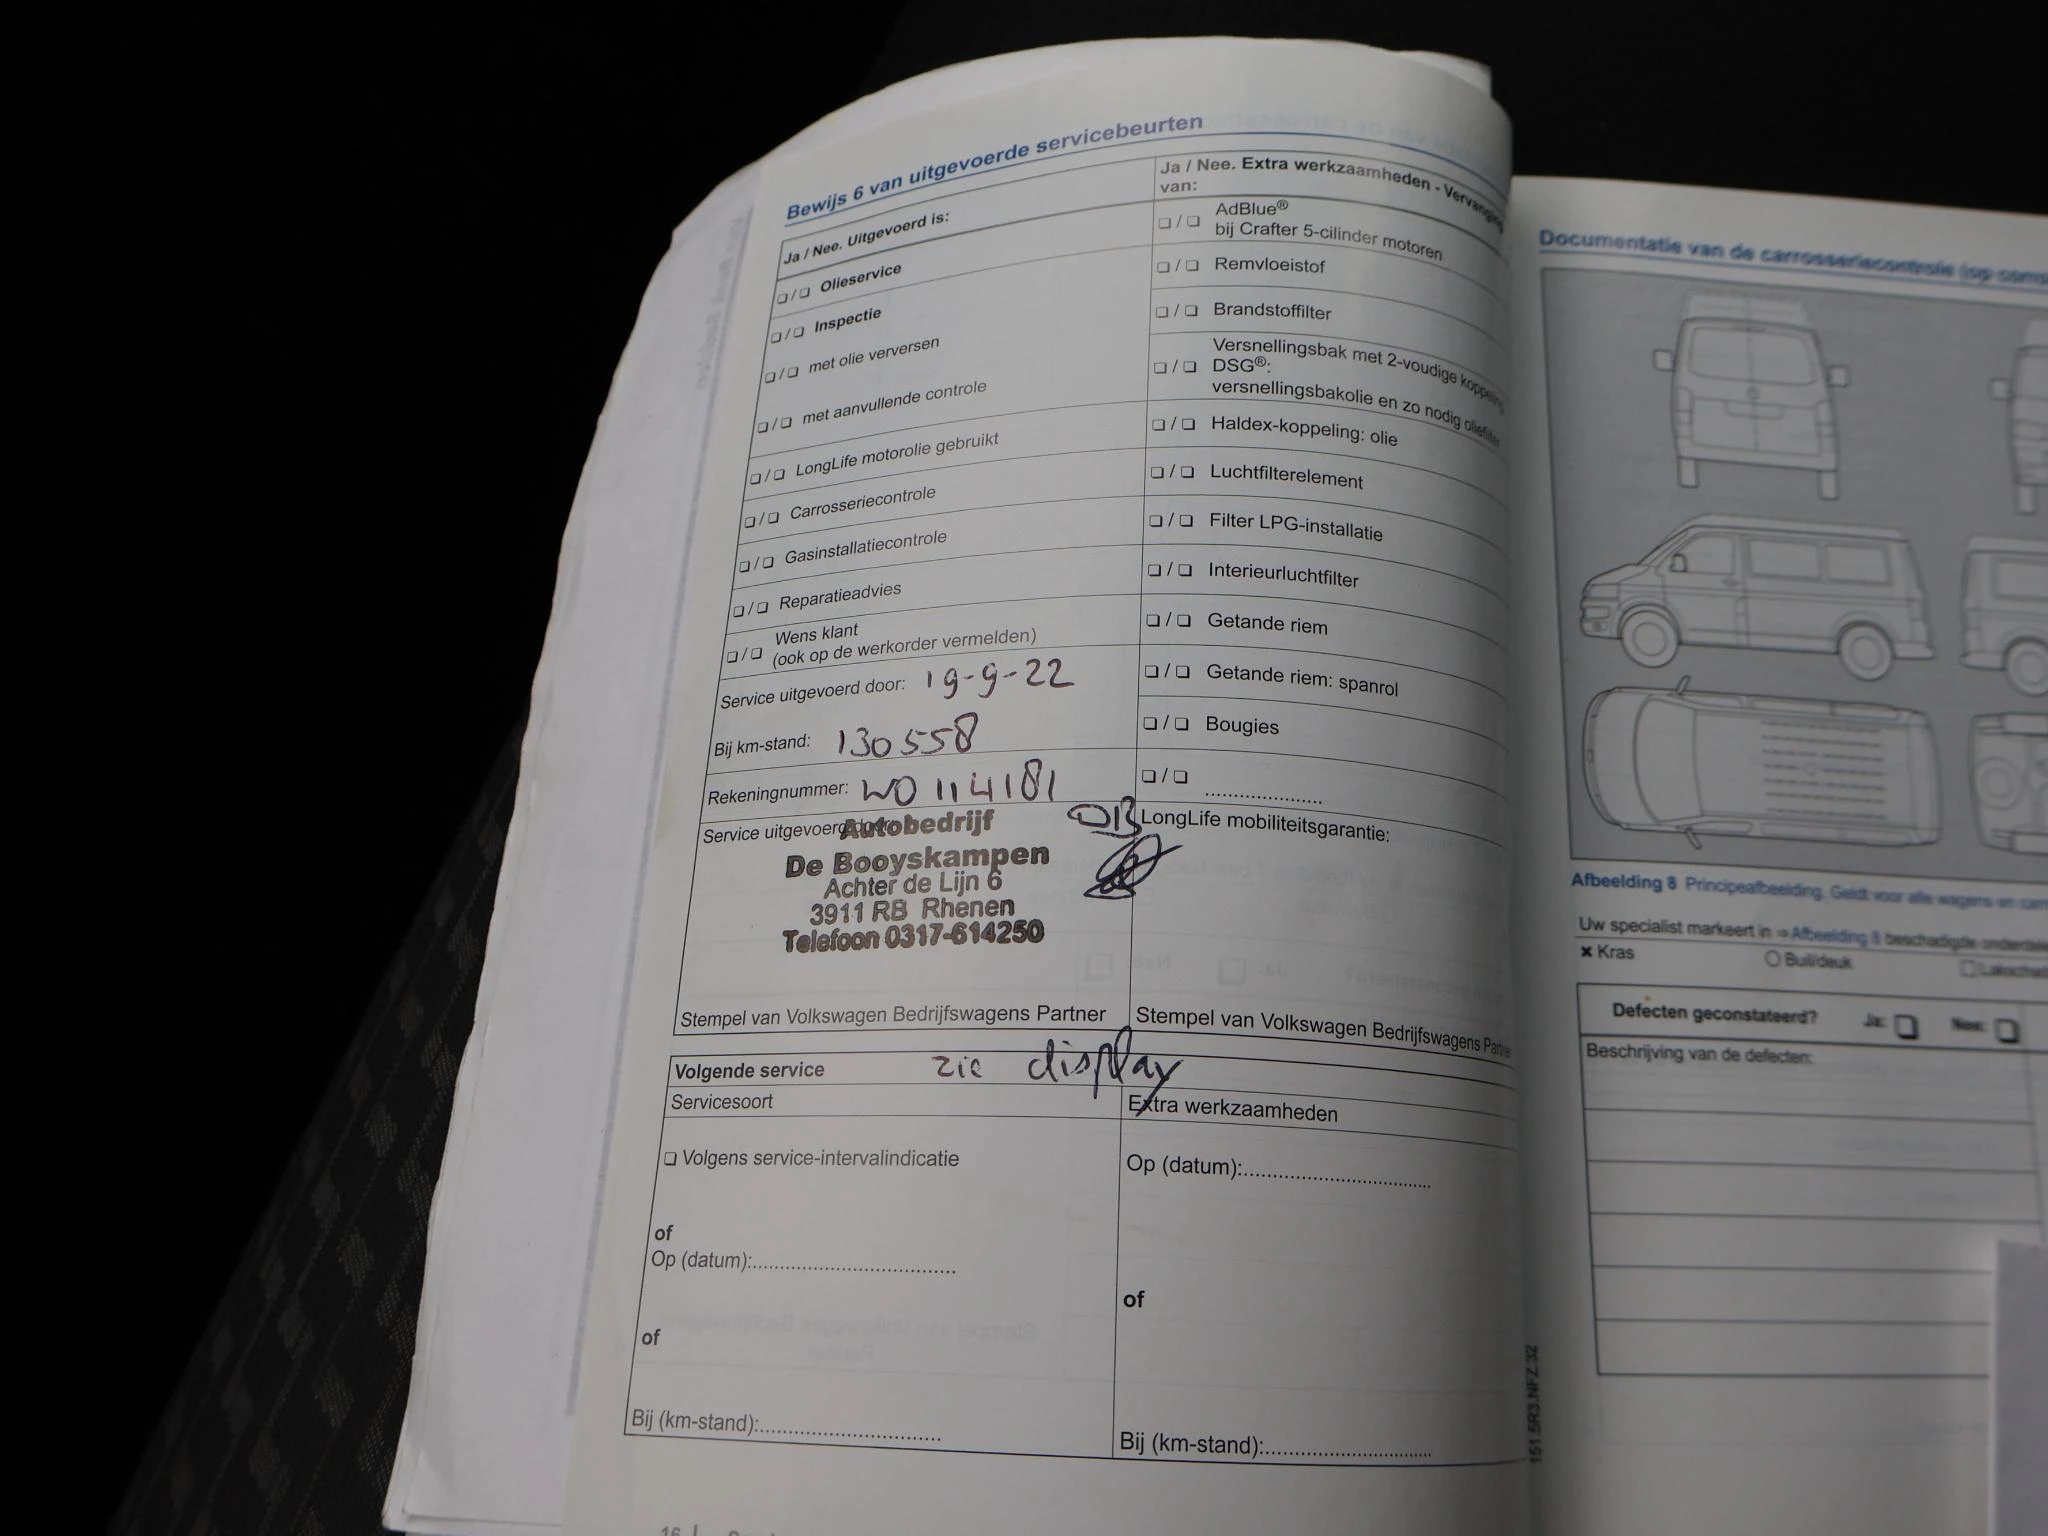 Bewijs 6 van uitgevoerde servicebeurten
Ja / Nee. Uitgevoerd is:
❏ / ❏ Olieservice
❏ / ❏ Inspectie
❏ / ❏ met olie verversen
❏ / ❏ met aanvullende controle
❏ / ❏ LongLife motorolie gebruikt
❏ / ❏ Carrosseriecontrole
❏ / ❏ Gasinstallatiecontrole
❏ / ❏ Reparatieadvies
❏ / ❏ Wens klant
(ook op de werkorder vermelden)
Service uitgevoerd door: 19-9-22
Bij km-stand: 130558
Rekeningnummer: WO 114181
Service uitgevoerd door:
Autobedrijf
De Booyskampen
Achter de Lijn 6
3911 RB Rhenen
Telefoon 0317-614250
Stempel van Volkswagen Bedrijfswagens Partner
Ja / Nee. Extra werkzaamheden - Vervanging
van:
❏ / ❏ AdBlue®
bij Crafter 5-cilinder motoren
❏ / ❏ Remvloeistof
❏ / ❏ Brandstoffilter
Versnellingsbak met 2-voudige koppeling
❏ / ❏ DSG®:
versnellingsbakolie en zo nodig oliefilter
❏ / ❏ Haldex-koppeling: olie
❏ / ❏ Luchtfilterelement
❏ / ❏ Filter LPG-installatie
❏ / ❏ Interieurluchtfilter
❏ / ❏ Getande riem
❏ / ❏ Getande riem: spanrol
❏ / ❏ Bougies
❏ / ❏ ......................
LongLife mobiliteitsgarantie:
Stempel van Volkswagen Bedrijfswagens Partner
Volgende service zie display
Servicesoort
❏ Volgens service-intervalindicatie
of
Op (datum):.....................................
of
Bij (km-stand):.................................
Extra werkzaamheden
Op (datum):..................................
of
Bij (km-stand):..............................
151.5R3.NFZ.32
16
Documentatie van de carrosseriecontrole (op
Afbeelding 8 Principeafbeelding. Geldt voor alle wagens en
Uw specialist markeert in ⇒ Afbeelding 8 beschadigde
× Kras ○ Buil/deuk
Defecten geconstateerd? Ja: ❏ Nee: ❏
Beschrijving van de defecten: